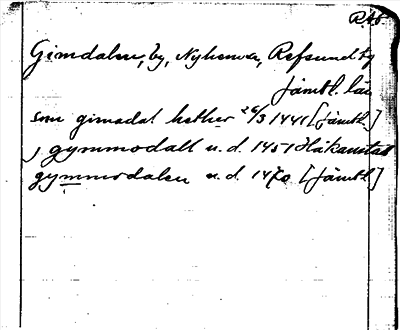 R.A.S.
Gimdalen, by, Nyhems sn, Refsunds tg
Jämtl. län
som gimadal hether 26/3 1441 [Jämtl.]
j gymmodall u. d. 1451 Håkanstad
gymmodalen u. d. 1470 [Jämtl.]